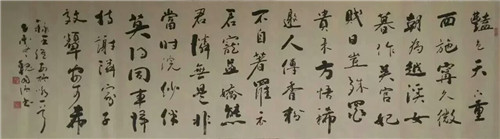 豔色天下重
西施寧久微
朝為越溪女
暮作吳宮妃
賤日豈殊眾
貴來方悟稀
邀人傅香粉
不自著羅衣
君寵益嬌態
君憐無是非
當時浣紗伴
莫得同車歸
持謝鄰家子
效顰安可希